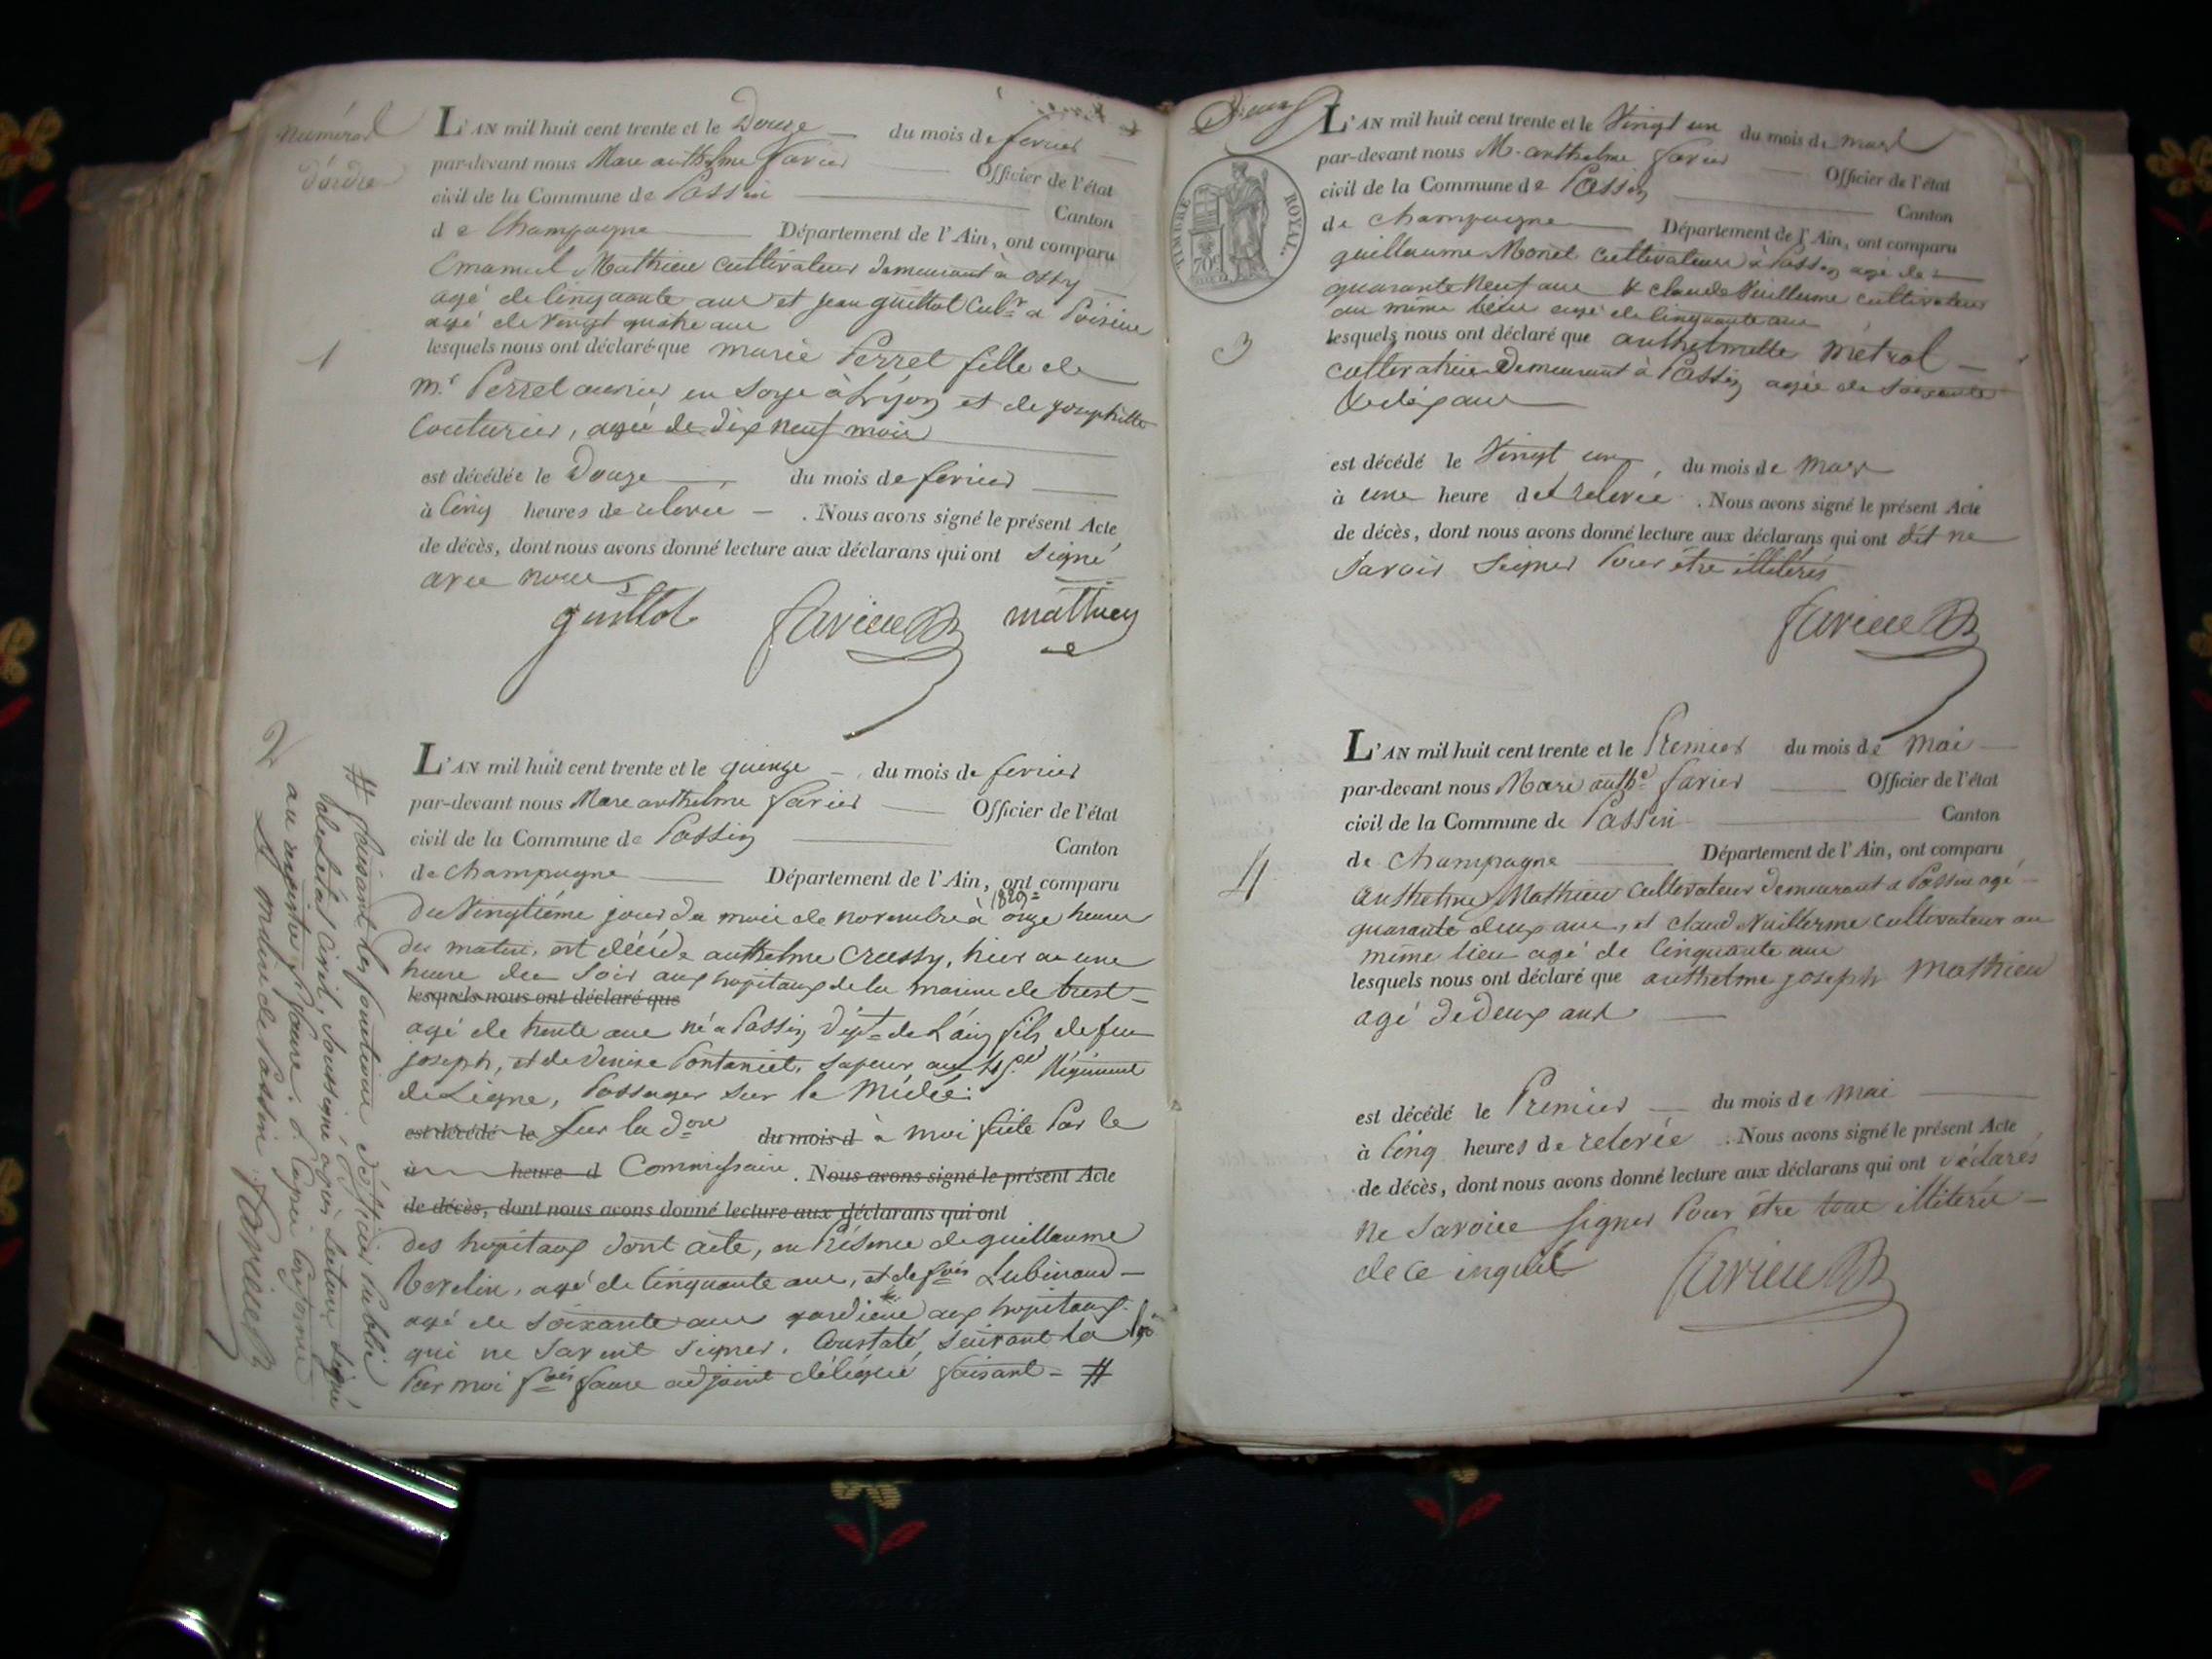 numéros
d'ordre
L'AN mil huit cent trente et le Douze du mois de fevrier
par-devant nous Marc anthelme favier Officier de l'état
civil de la Commune de Passin
Canton
de Champagne Département de l'Ain, ont comparu
Emanuel Mathieu cultivateur demeurant à
agé de Cinquante ans et jean guillot Culr a Poisieu
agé de vingt quatre ans
1
lesquels nous ont déclaré que marie Perret fille de
mr Perret ouvrier en Soye à Lyon et de josephette
Couturier, agée de dix neuf mois
est décédée le Douze du mois de fevrier
à Cinq heures de relevée . Nous avons signé le présent Acte
de décès, dont nous avons donné lecture aux déclarans qui ont signé
avec nous
guillot favier mathieu
2
L'AN mil huit cent trente et le quinze du mois de fevrier
par-devant nous Marc anthelme favier Officier de l'état
civil de la Commune de Passin
Canton
de Champagne Département de l'Ain, ont comparu
1829
Du Vingtiéme jour du mois de novembre à onze heures
du matin, est décédé anthelme Crussy, hier a une
heure du soir aux hopitaux de la marine de brest
lesquels nous ont déclaré que
agé de trente ans né a Passin Dépt de L'ain fils de feu
joseph, et de Denise Pontaniet, sapeur au 45e Régiment
de Ligne, Passager sur la Médée.
est décédé le sur la Don du mois d à moi faite Par le
à heure d Commissaire . Nous avons signé le présent Acte
de décès, dont nous avons donné lecture aux déclarans qui ont
des hopitaux dont acte, en Présence de guillaume
agé de Cinquante ans, et de fois Lubinaud
agé de soixante ans gardiens aux hopitaux
qui ne savent signer. Constaté, suivant la loi
Par moi fois faure adjoint délégué faisant #
# faisant les fonctions d'officier Public
de L'état Civil, soussigné après Lecture signé
au registre f. faure. P. Copie Conforme
Le maire de Passin favier
L'AN mil huit cent trente et le Vingt un du mois de mars
par-devant nous M. anthelme favier Officier de l'état
civil de la Commune de Passin
Canton
de Champagne Département de l'Ain, ont comparu
TIMBRE ROYAL
guillaume Monet Cultivateur à Passin agé de
quarante Neuf ans & claude Vuillerme cultivateur
au même lieu agé de Cinquante ans
3
lesquels nous ont déclaré que anthelmette métral
cultivatrice Demeurant à Passin agée de soixante
& dix ans
est décédé le Vingt un du mois de mars
à une heure de relevée . Nous avons signé le présent Acte
de décès, dont nous avons donné lecture aux déclarans qui ont dit ne
savoir signer Pour être illiterés
favier
L'AN mil huit cent trente et le Premier du mois de mai
par-devant nous Marc anthe favier Officier de l'état
civil de la Commune de Passin
Canton
de Champagne Département de l'Ain, ont comparu
4
anthelme Mathieu Cultivateur demeurant a Passin agé
quarante deux ans, et claud Vuillerme Cultivateur au
même lieu agé de Cinquante ans
lesquels nous ont déclaré que anthelme joseph Mathieu
agé de deux ans
est décédé le Premier du mois de mai
à Cinq heures de relevée . Nous avons signé le présent Acte
de décès, dont nous avons donné lecture aux déclarans qui ont déclarés
ne savoir signer Pour être tous illiterés
de ce inquis
favier